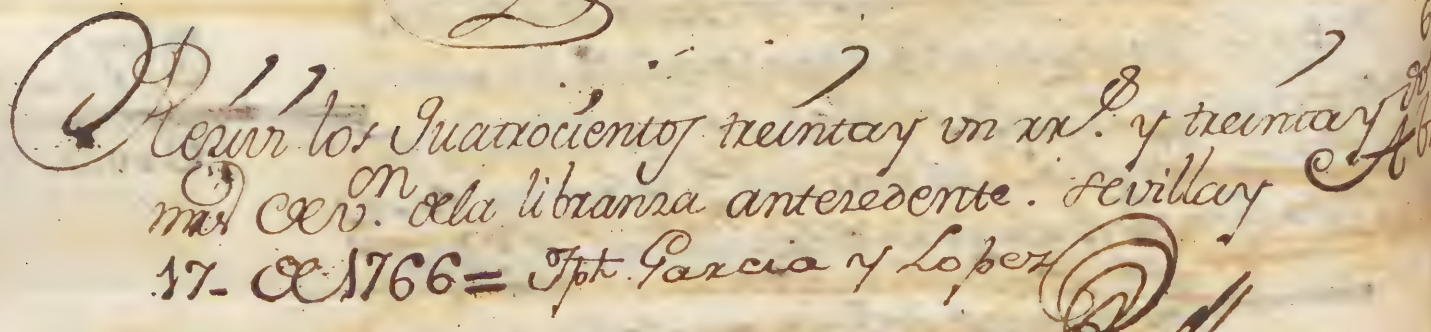 Reciui los Quatrocientos treinta y un rr.s y treinta y
mrs de v.on dela libranza antezedente. Sevilla y
17- de 1766 = Jph. Garcia y Lopez